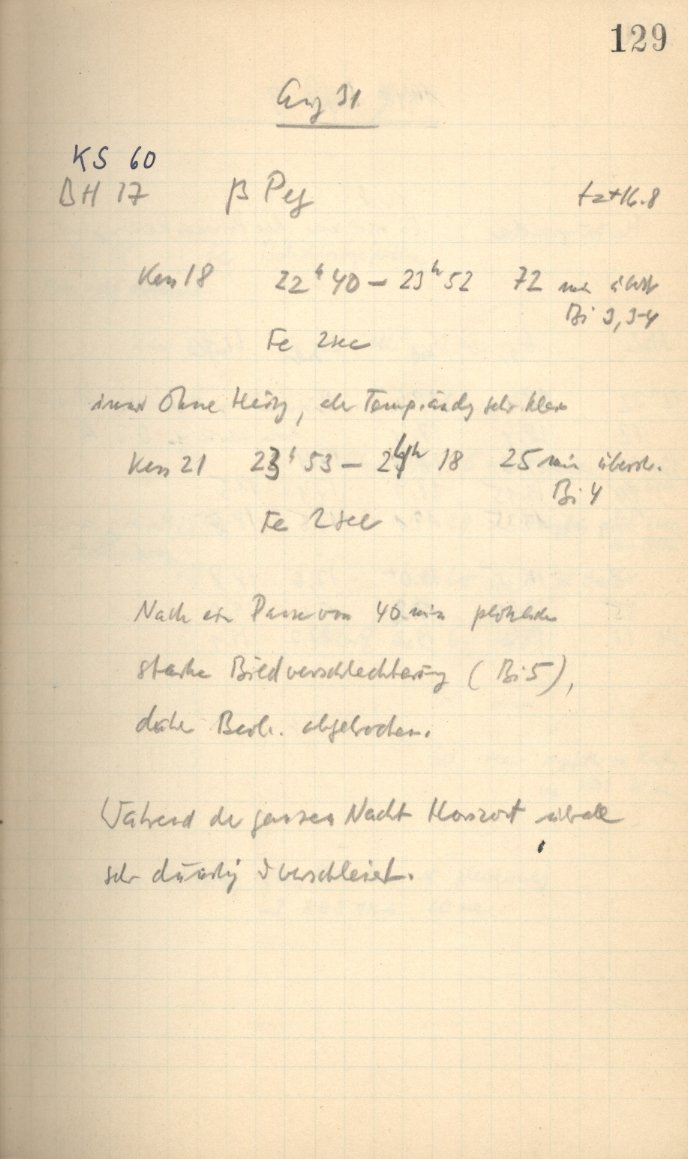 129
Aug 31
KS 60
BH 17 β Peg t=+16.8
Kass 18 22ʰ 40 – 23ʰ 52 72 min
Bi 3, 3-4
Fe 2 sec
immer ohne Heizg, da Temp.ändg sehr klein
Kass 21 23ʰ 53 – 24ʰ 18 25 min übersch.
Bi 4
Fe 2 sec
Nach ein Pause von 40 min plötzlich
starke Bildverschlechterung (Bi 5),
daher Beob. abgebrochen.
Während der ganzen Nacht Horizont überall
sehr dunstig & verschleiert.